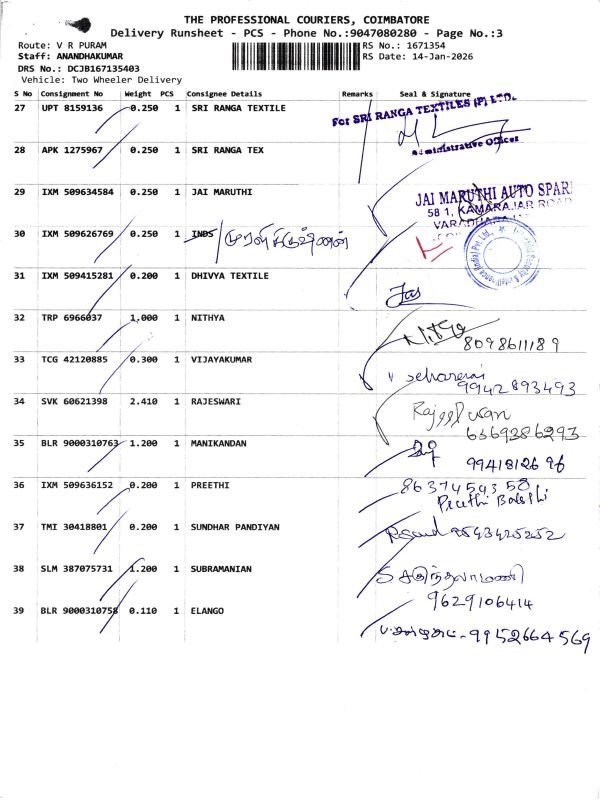 THE PROFESSIONAL COURIERS, COIMBATORE
Delivery Runsheet - PCS - Phone No.:9047080280 - Page No.:3
Route: V R PURAM
RS No.: 1671354
Staff: ANANDHAKUMAR
RS Date: 14-Jan-2026
DRS No.: DCJB167135403
Vehicle: Two Wheeler Delivery
S No Consignment No Weight PCS Consignee Details Remarks Seal & Signature
27 UPT 8159136 0.250 1 SRI RANGA TEXTILE
For SRI RANGA TEXTILES (P) LTD.
Administrative Officer
28 APK 1275967 0.250 1 SRI RANGA TEX
29 IXM 509634584 0.250 1 JAI MARUTHI
JAI MARUTHI AUTO SPAR
58 1, KAMARAJAR ROAD
30 IXM 509626769 0.250 1 INDS
31 IXM 509415281 0.200 1 DHIVYA TEXTILE
32 TRP 6966037 1.000 1 NITHYA
8098611189
33 TCG 42120885 0.300 1 VIJAYAKUMAR
9942893493
34 SVK 60621398 2.410 1 RAJESWARI
6369286293
35 BLR 9000310763 1.200 1 MANIKANDAN
9941812696
36 IXM 509636152 0.200 1 PREETHI
8637454358
Preethi
37 TMI 30418801 0.200 1 SUNDHAR PANDIYAN
38 SLM 387075731 1.200 1 SUBRAMANIAN
9629106414
39 BLR 9000310758 0.110 1 ELANGO
9952664569